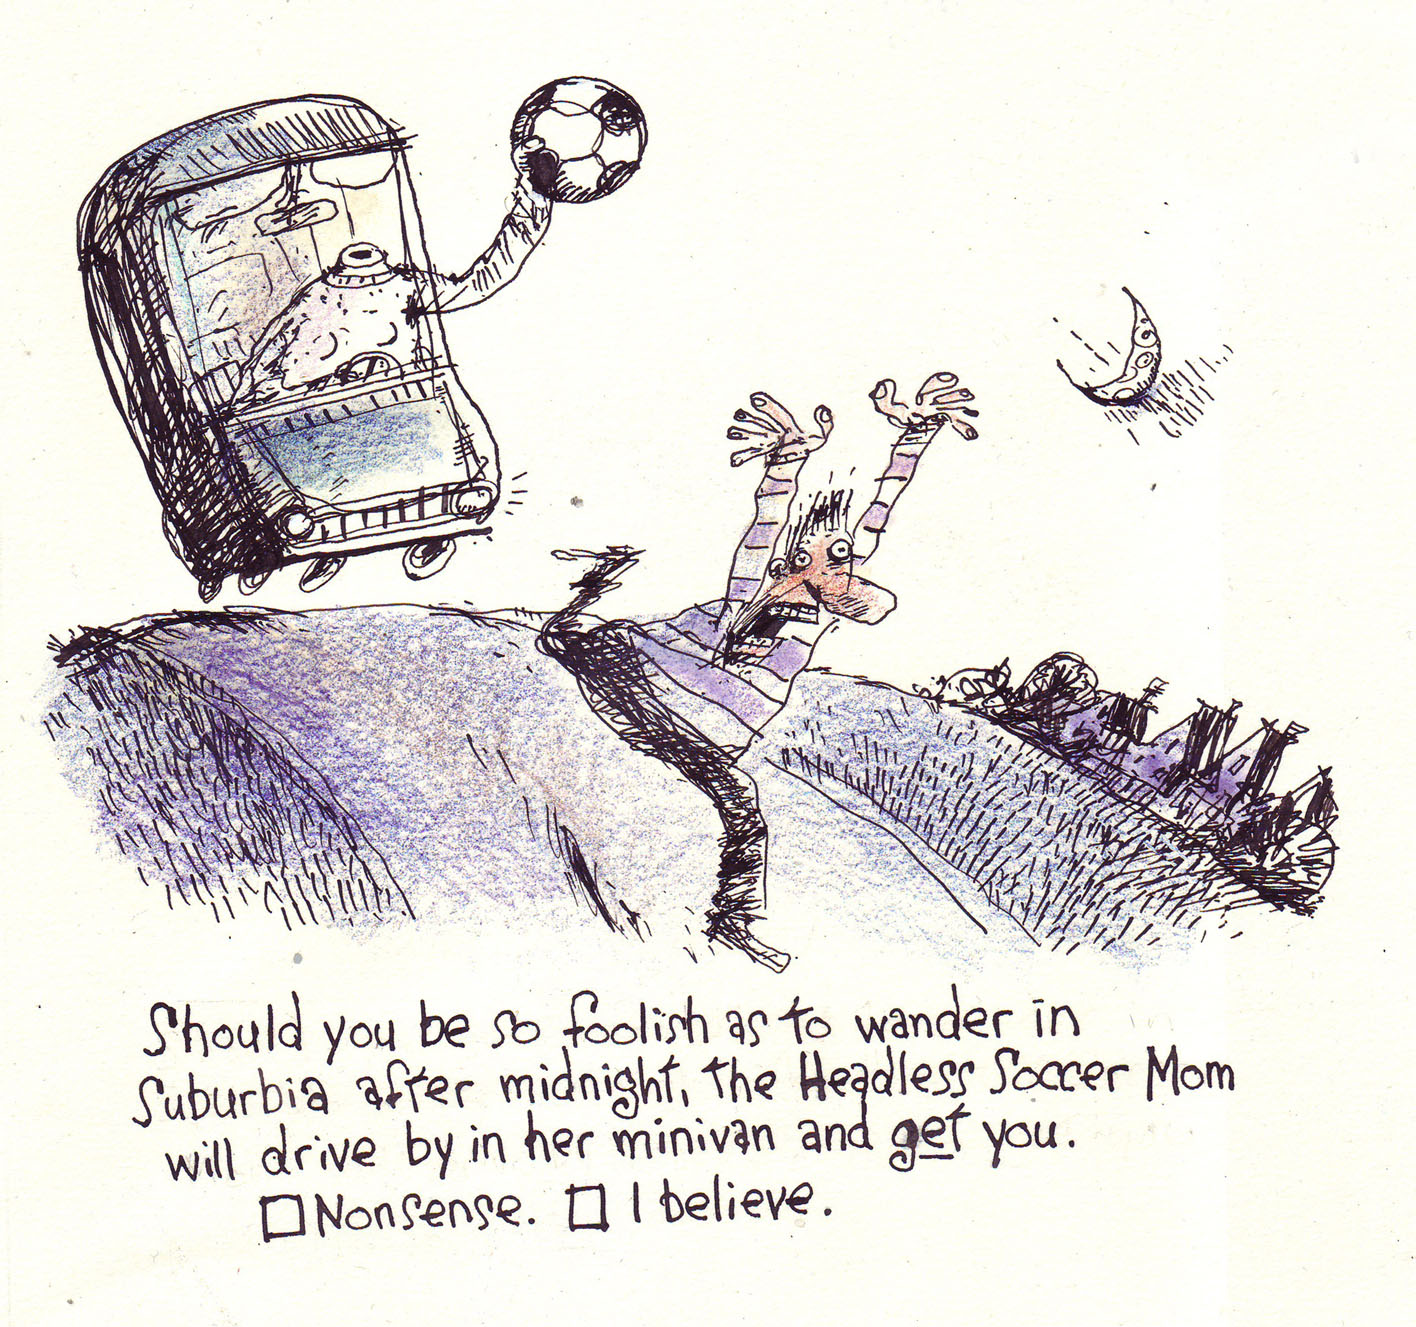 Should you be so foolish as to wander in
Suburbia after midnight, the Headless Soccer Mom
will drive by in her minivan and get you.
☐ Nonsense. ☐ I believe.